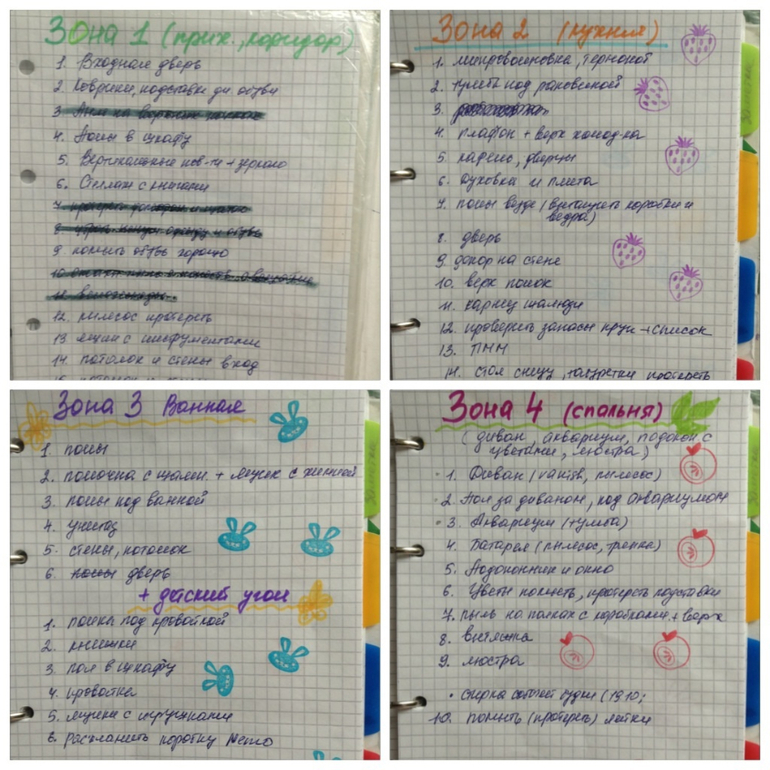 Зона 1 (прих., коридор)
1. Входная дверь
2. Коврики, подставки дл обуви
3.
4. Полы в шкафу
5. Вертикальные пов-ти + зеркало
6. Стеллаж с книгами
7.
8.
9. помыть обувь хорошо
10.
11.
12. пылесос протереть
13 ящики с инструментами
14. потолок и стены вход
Зона 2 (кухня)
1. микроволновка, термопот
2. тумба под раковиной
3.
4. плафон + верх холод-ка
5. кафель, дверцы
6. Духовка и плита
7. полы везде (вытащить коробки и
ведра)
8. дверь
9. декор на стене
10. верх полок
11. карниз жалюзи
12. проверить запасы круп + список
13. ПММ
14. стол снизу, табуретки протереть
Заметки
Зона 3 Ванная
1. полы
2. полочка с шамп. + ящик с химией
3. полы под ванной
4. унитаз
5. стены, потолок
6. дверь
+ детский угол
1. полы под кроватью
2. книжки
3. пол в шкафу
4. кроватка
5. ящики с игрушками
6. расхламить коробку
Зона 4 (спальня)
(диван, аквариум, подокон с
цветами, люстра)
1. Диван (vanish, пылесос)
2. Пол за диваном, под аквариумом
3. Аквариум (+тумба)
4. Батарея (пылесос, тряпка)
5. Подоконник и окно
6. Цветы помыть, протереть подставки
7. пыль на полках с коробками + вверх
8. вытяжка
9. люстра
• стирка (19.10;
10. помыть (протереть) лотки